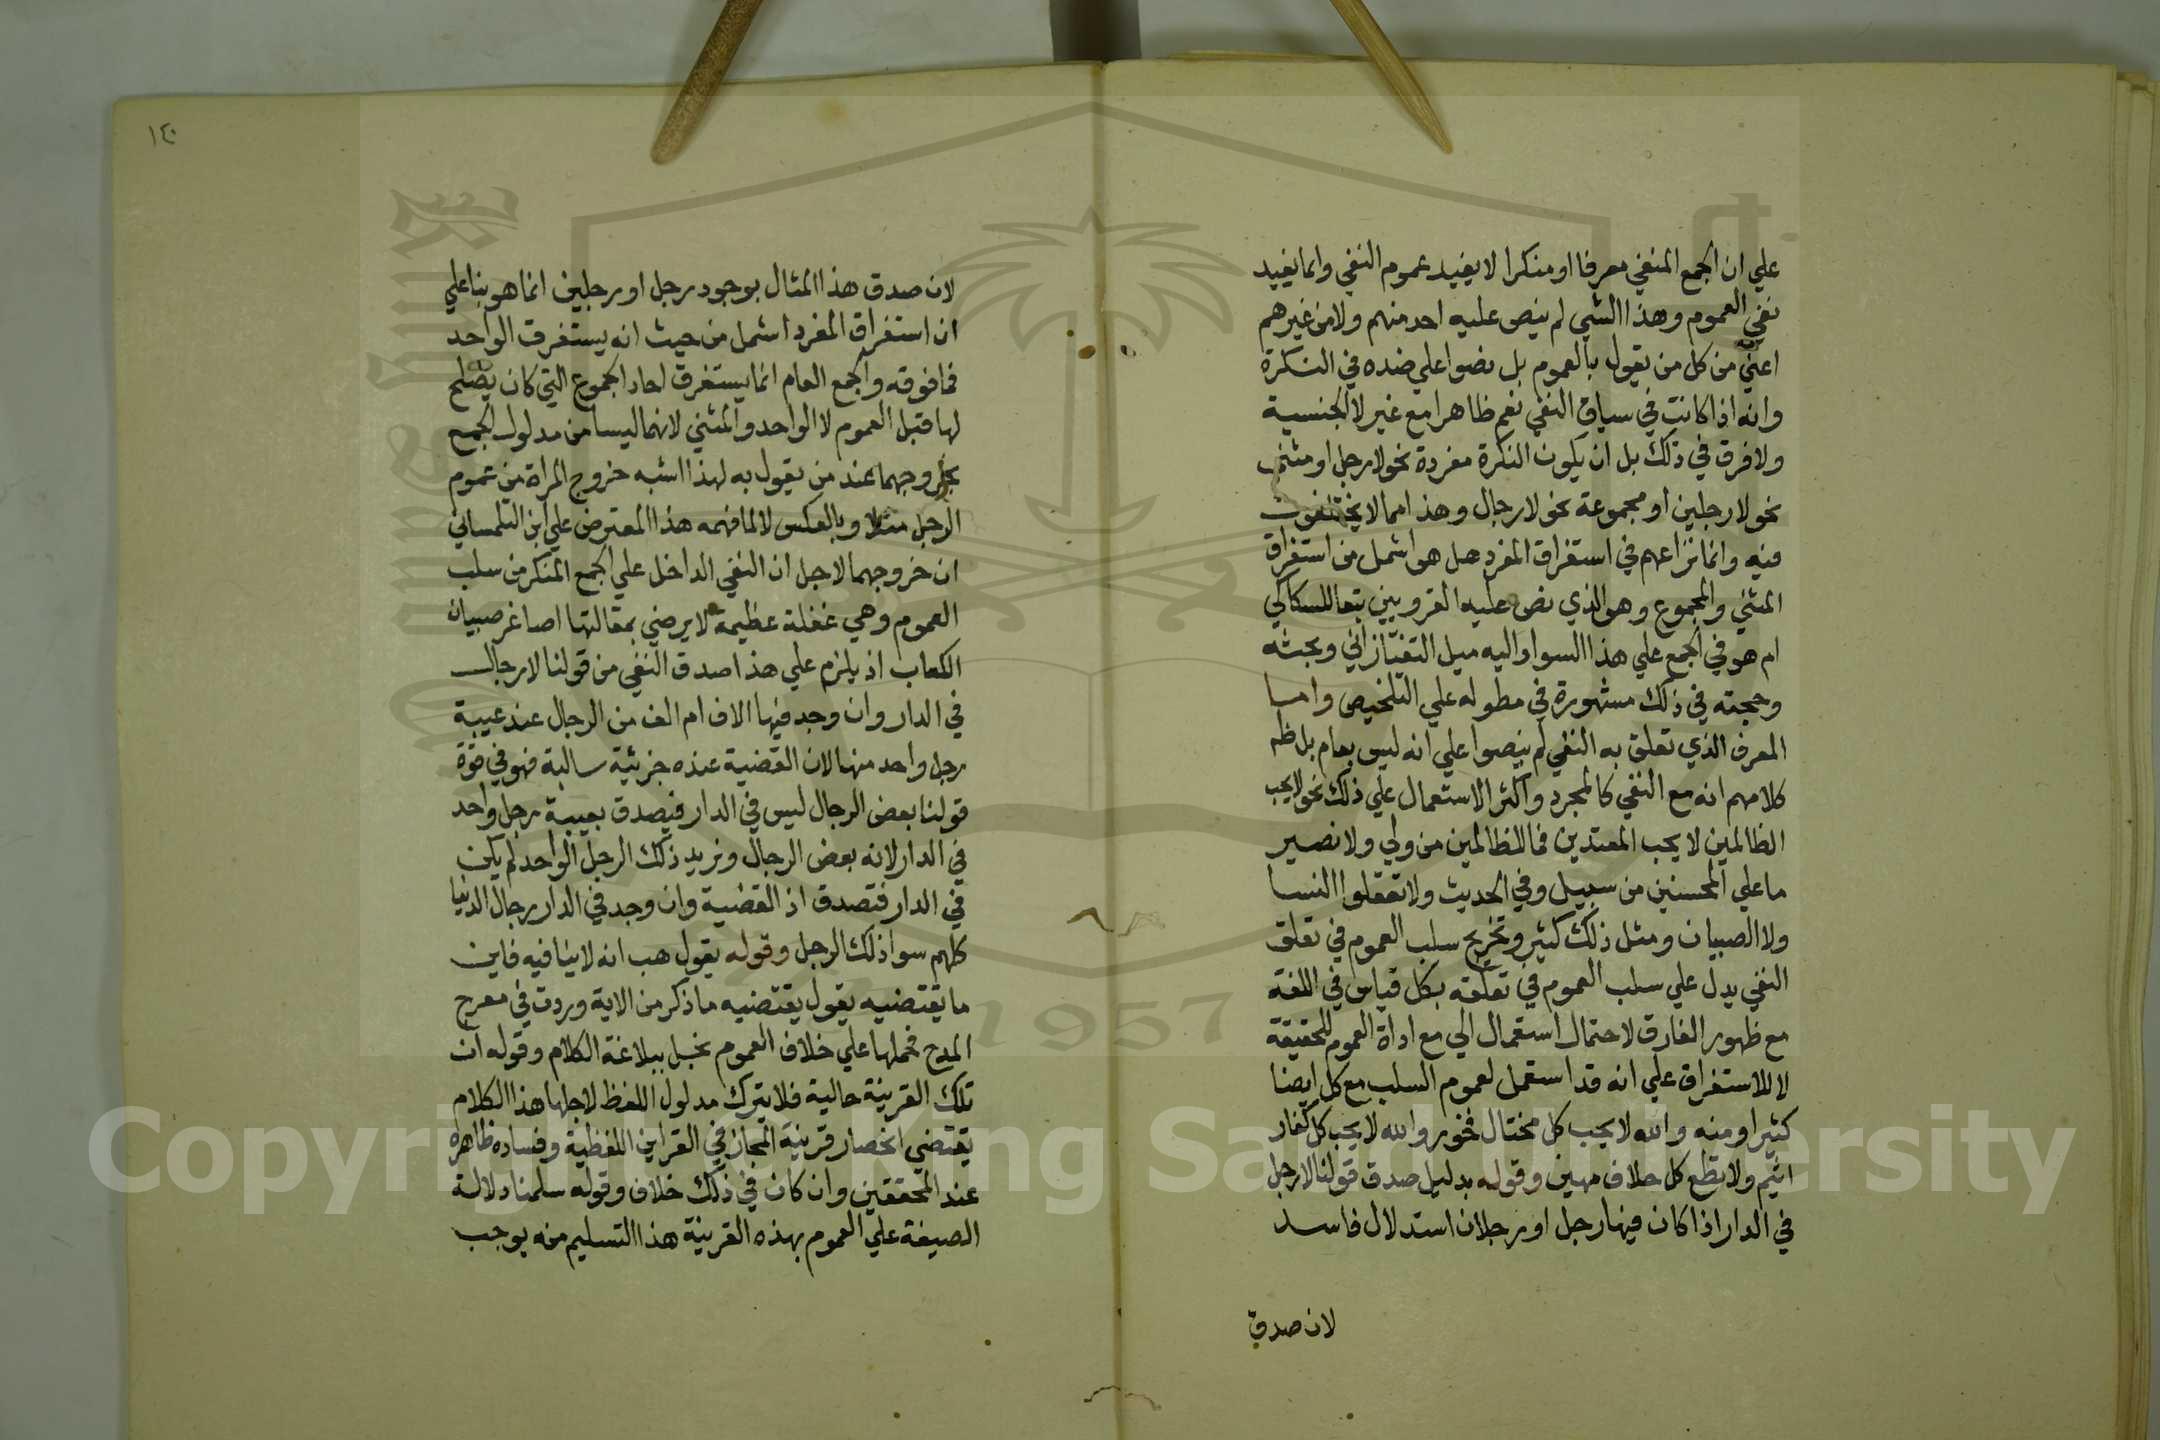 علي ان الجمع المنفي معرفا او منكرا لا يفيد عموم النفي وانما يفيد
نفي العموم وهذا الشي لم ينص عليه احد منهم ولا من غيرهم
اعني من كل من يقول بالعموم بل نصوا علي ضده في النكرة
وانه اذا كانت في سياق النفي نعم ظاهرا مع غير لا الجنسية
ولا فرق في ذلك بل ان يكون النكرة مفردة نحو لا رجل او مثني
نحو لا رجلين او مجموعة نحو لا رجال وهذا مما لا يختلفون
فيه وانما نزاعهم في استغراق المفرد هل هو اشمل من استغراق
المثني والمجموع وهو الذي نص عليه القزويني تبعا للسكاكي
ام هو في الجمع علي هذا السوا واليه ميل التفتازاني وبحثه
وحجته في ذلك مشهورة في مطوله علي التلخيص واما
المعرف الذي تعلق به النفي لم ينصوا علي انه ليس بعام بل ظ
كلامهم انه مع النفي كالمجرد واكثر الاستعمال علي ذلك نحو لا يحب
الظالمين لا يحب المعتدين فما للظالمين من ولي ولا نصير
ما علي المحسنين من سبيل وفي الحديث ولا تقتلوا النسا
ولا الصبيان ومثل ذلك كثير وتخريج سلب العموم في تعلق
النفي يدل علي سلب العموم في تعلقه بكل قياس في اللغة
مع ظهور الفارق لاحتمال استعمال الي مع اداة العموم للحقيقة
لا للاستغراق علي انه قد استعمل لعموم السلب مع كل ايضا
كثيرا ومنه والله لا يحب كل مختال فخور والله لا يحب كل كفار
اثيم ولا تطع كل حلاف مهين وقوله بدليل صدق قولنا لا رجل
في الدار اذا كان فيها رجل او رجلان استدلال فاسد
لان صدق
١٢٠
لان صدق هذا المثال بوجود رجل او رجلين انما هو بنا علي
ان استغراق المفرد اشمل من حيث انه يستغرق الواحد
فما فوقه والجمع العام انما يستغرق احاد الجموع التي كان يصلح
لها قبل العموم لا الواحد والمثني لانهما ليسا من مدلول الجمع
بخروجهما عند من يقول به لهذا اشبه خروج المراة من عموم
الرجل مثلا وبالعكس لا لما فهمه هذا المعترض علي ابن التلمساني
ان خروجهما لاجل ان النفي الداخل علي الجمع المنكر من سلب
العموم وهي غفلة عظيمة لا يرضي بمقالتها اصاغر صبيان
الكعاب اذ يلزم علي هذا صدق النفي من قولنا لا رجال
في الدار وان وجد فيها الاف ام الف من الرجال عند غيبة
رجل واحد منها لان القضية عنده جزئية سالبة فهو في قوة
قولنا بعض الرجال ليس في الدار فيصدق بغيبة رجل واحد
في الدار لانه بعض الرجال ونريد ذلك الرجل الواحد لم يكن
في الدار فتصدق اذ القضية وان وجد في الدار رجال الدنيا
كلهم سوا ذلك الرجل وقوله يقول هب انه لا ينافيه فاين
ما يقتضيه يقول يقتضيه ما ذكر من الاية وردت في معرج
المدح فحملها علي خلاف العموم نخيل ببلاغة الكلام وقوله ان
تلك القرينة حالية فلا يترك مدلول اللفظ لاجلها هذا الكلام
يقتضي انحصار قرينة المجاز في القراين اللفظية وفساده ظاهره
عند المحققين وان كان في ذلك خلاف وقوله سلمنا دلالة
الصيغة علي العموم بهذه القرينة هذا التسليم منه يوجب
1957
Copyright © King Saud University